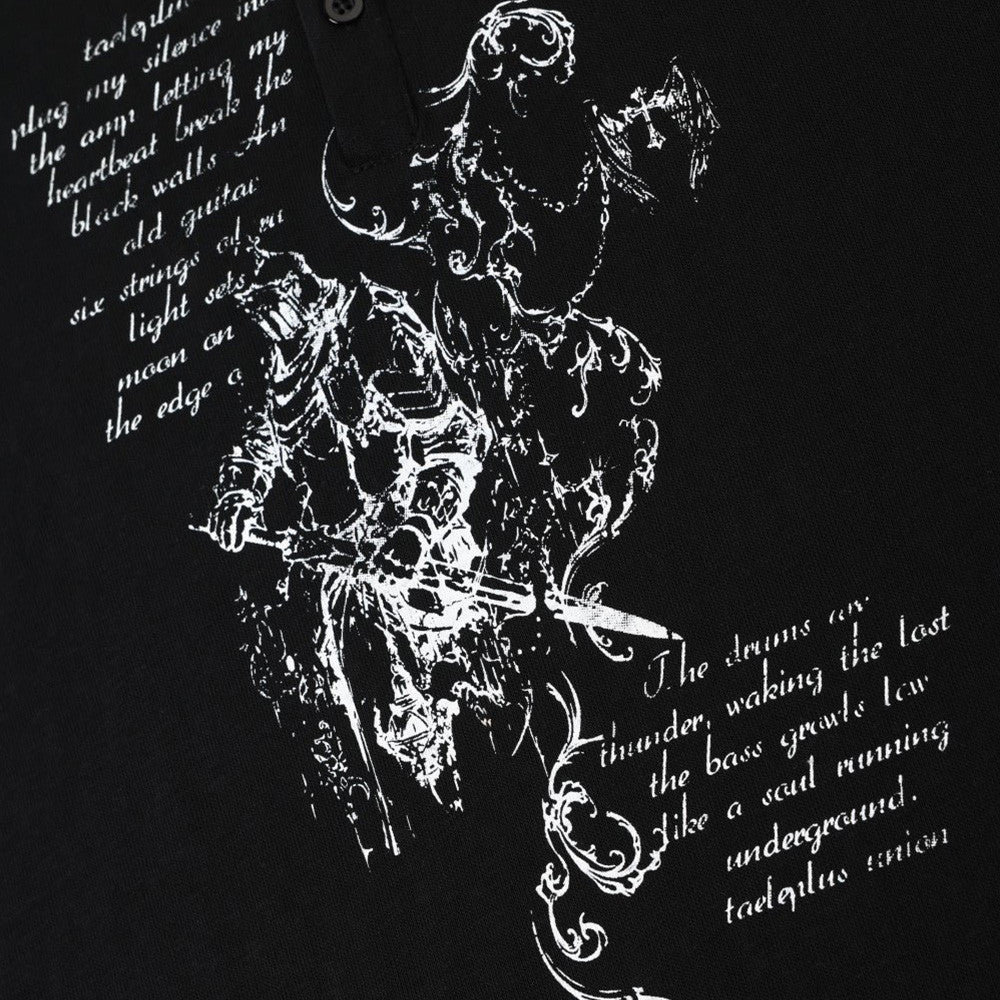 plug my silence
the amp letting my
heartbeat break the
black walls An
old guitar
six strings
light sets
moon on
the edge
The drums
thunder, waking the lost
the bass growls low
like a soul running
underground.
union